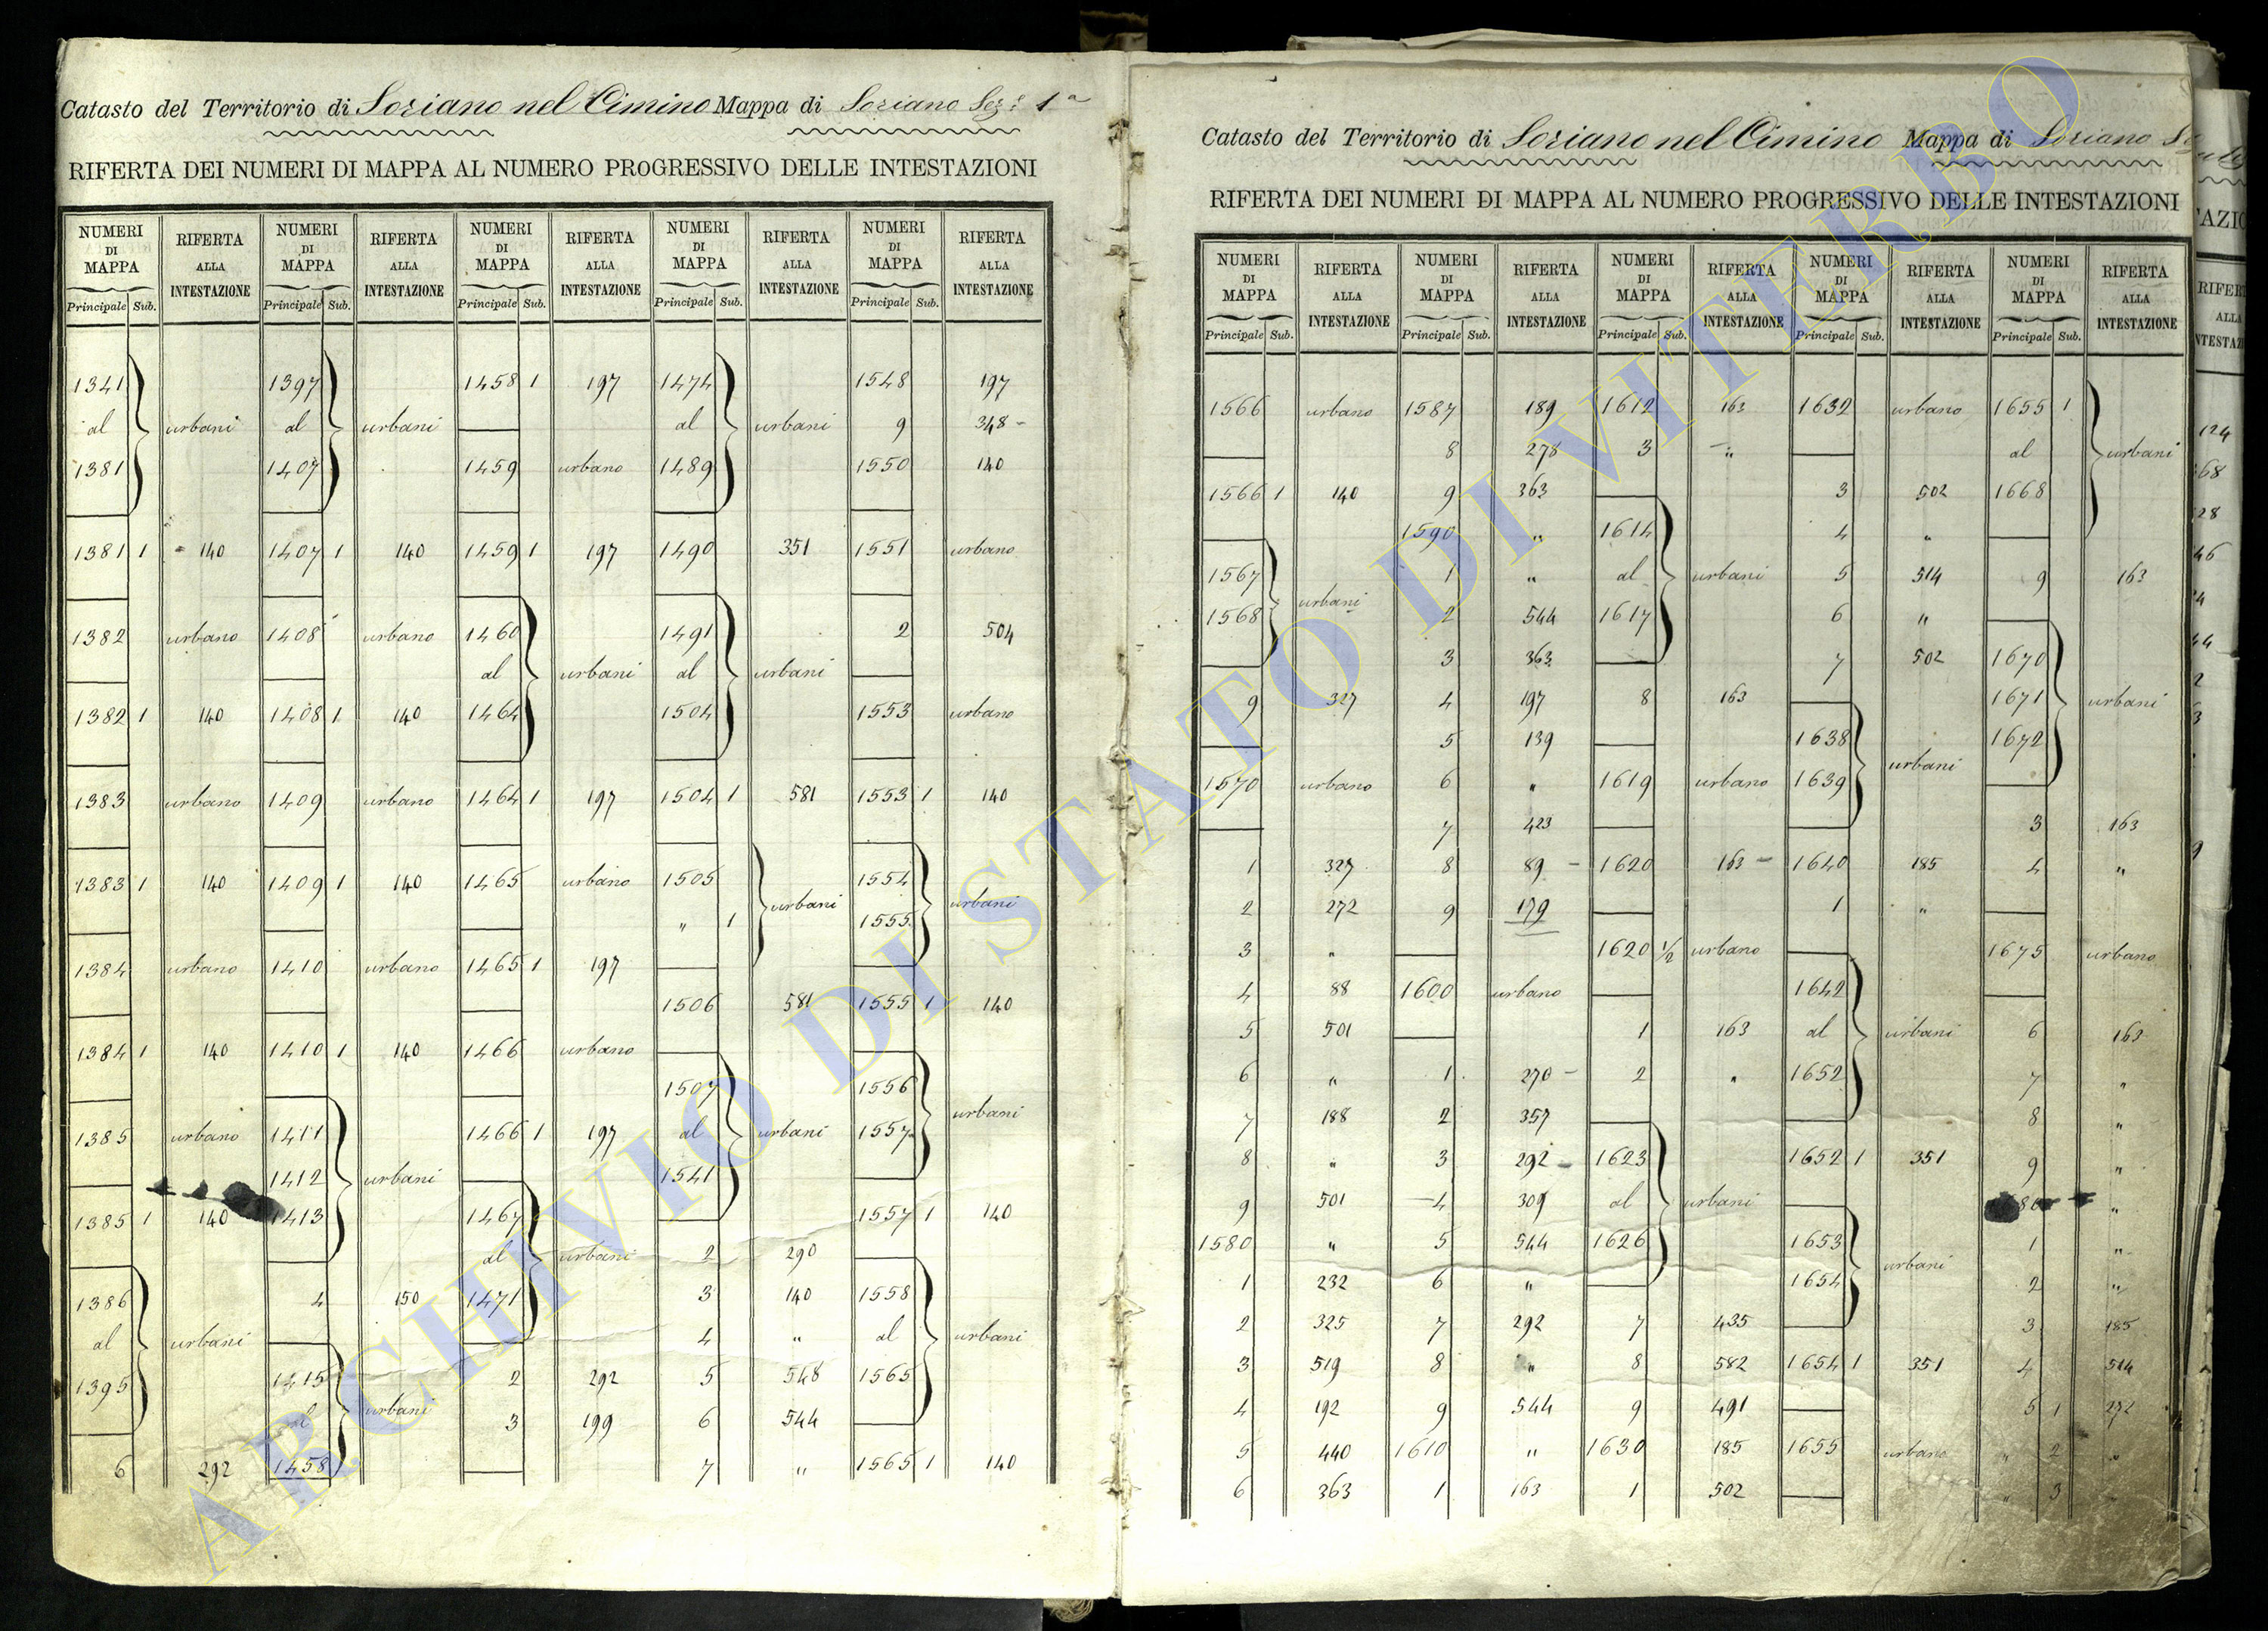 Catasto del Territorio di Soriano nel Cimino Mappa di Soriano Sez.e 1a
RIFERTA DEI NUMERI DI MAPPA AL NUMERO PROGRESSIVO DELLE INTESTAZIONI
NUMERI DI MAPPA RIFERTA ALLA INTESTAZIONE NUMERI DI MAPPA RIFERTA ALLA INTESTAZIONE NUMERI DI MAPPA RIFERTA ALLA INTESTAZIONE NUMERI DI MAPPA RIFERTA ALLA INTESTAZIONE NUMERI DI MAPPA RIFERTA ALLA INTESTAZIONE
Principale Sub. Principale Sub. Principale Sub. Principale Sub. Principale Sub.
1341
al urbani
1381
1381 1 140
1382 urbano
1382 1 140
1383 urbano
1383 1 140
1384 urbano
1384 1 140
1385 urbano
1385 1 140
1386
al urbani
1395
6 292
1397
al urbani
1407
1407 1 140
1408 urbano
1408 1 140
1409 urbano
1409 1 140
1410 urbano
1410 1 140
1411
1412 urbani
1413
4 150
1415
al urbani
1458
1458 1 197
1459 urbano
1459 1 197
1460
al urbani
1464
1464 1 197
1465 urbano
1465 1 197
1466 urbano
1466 1 197
1467
al urbani
1471
2 292
3 199
1474
al urbani
1489
1490 351
1491
al urbani
1504
1504 1 581
1505
" 1 urbani
1506 581
1507
al urbani
1541
2 290
3 140
4 "
5 548
6 544
7 "
1548 197
9 348 -
1550 140
1551 urbano
2 504
1553 urbano
1553 1 140
1554
1555 urbani
1555 1 140
1556
1557 urbani
1557 1 140
1558
al urbani
1565
1565 1 140
Catasto del Territorio di Soriano nel Cimino Mappa di Soriano
RIFERTA DEI NUMERI DI MAPPA AL NUMERO PROGRESSIVO DELLE INTESTAZIONI
NUMERI DI MAPPA RIFERTA ALLA INTESTAZIONE NUMERI DI MAPPA RIFERTA ALLA INTESTAZIONE NUMERI DI MAPPA RIFERTA ALLA INTESTAZIONE NUMERI DI MAPPA RIFERTA ALLA INTESTAZIONE NUMERI DI MAPPA RIFERTA ALLA INTESTAZIONE
Principale Sub. Principale Sub. Principale Sub. Principale Sub. Principale Sub.
1566 urbano
1566 1 140
1567
1568 urbani
9 327
1570 urbano
1 327
2 272
3 "
4 88
5 501
6 "
7 188
8 "
9 501
1580 "
1 232
2 325
3 519
4 192
5 440
6 363
1587 189
8 278
9 363
1590 "
1 "
2 544
3 363
4 197
5 139
6 "
7 423
8 89 -
9 179
1600 urbano
1 270 -
2 357
3 292 -
4 309
5 544
6 "
7 292
8 "
9 544
1610 "
1 163
1612 163
3 "
1614
al urbani
1617
8 163
1619 urbano
1620 163 -
1620 1/2 urbano
1 163
2 "
1623
al urbani
1626
7 435
8 582
9 491
1630 185
1 502
1632 urbano
3 502
4 "
5 514
6 "
7 502
1638
1639 urbani
1640 185
1 "
1642
al urbani
1652
1652 1 351
1653
1654 urbani
1654 1 351
1655 urbano
1655 1
al urbani
1668
9 163
1670
1671 urbani
1672
3 163
4 "
1675 urbano
6 163
7 "
8 "
9 "
"
1 "
2 "
3 185
4 514
5 1 272
" 2 "
" 3
RIFERT
ALLA
124
ARCHIVIO DI STATO DI VITERBO